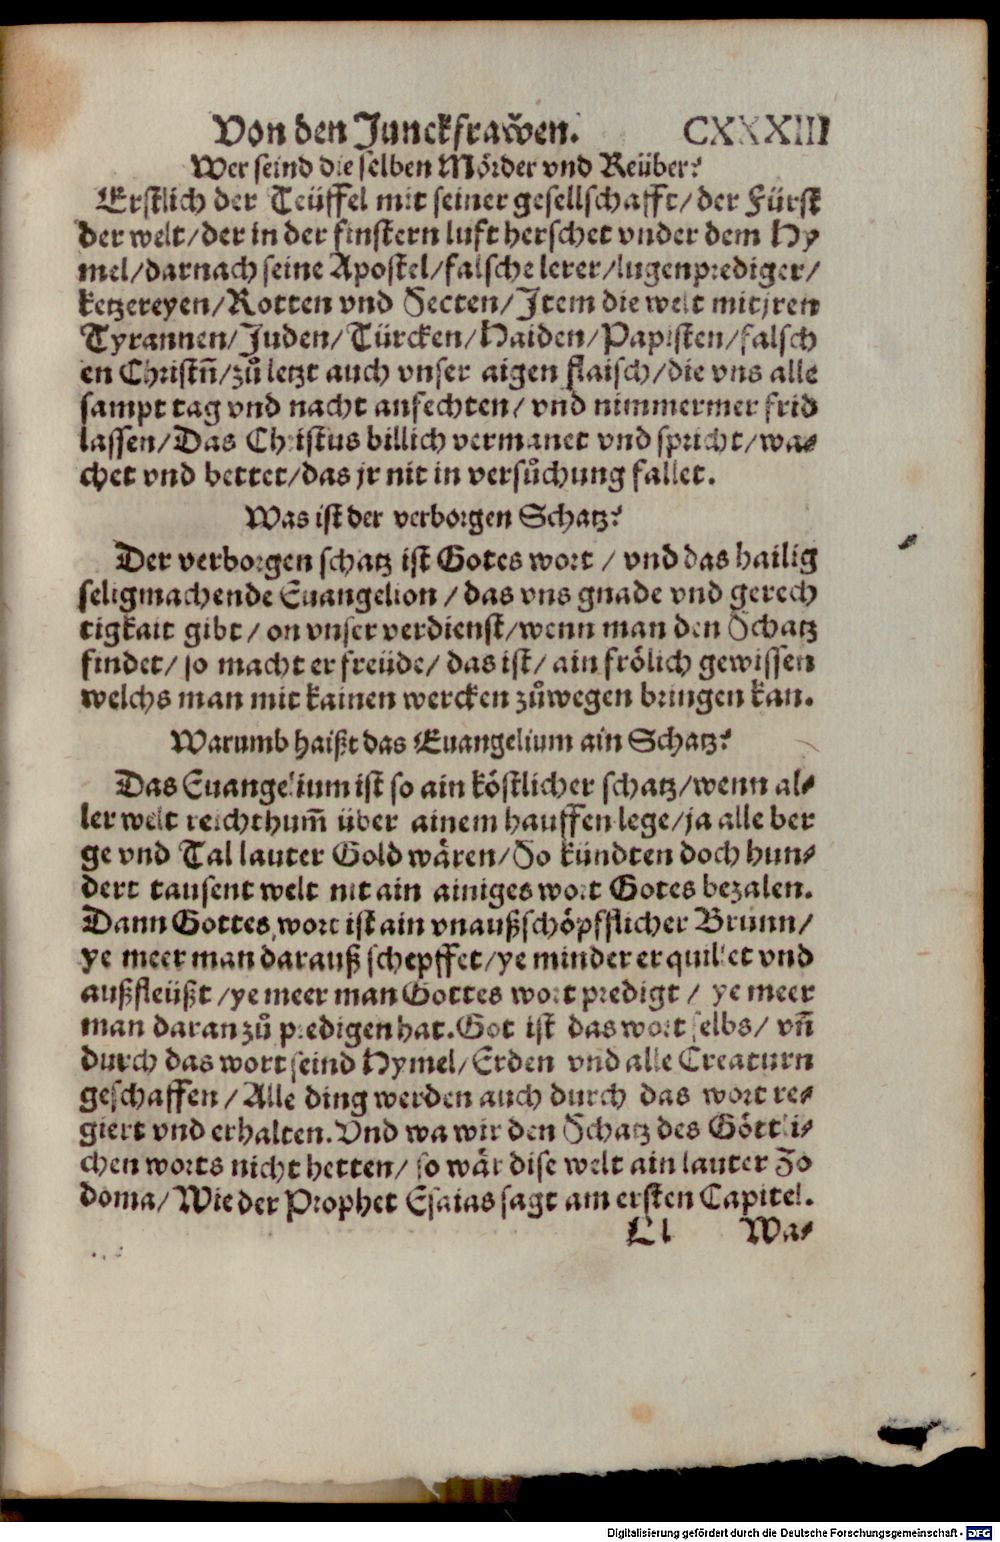 Von den Junckfrawen. CXXXIII
Wer seind die selben Mörder vnd Reüber?
Erstlich der Teüffel mit seiner gesellschafft/ der Fürst
der welt/ der in der finstern luft herschet vnder dem Hy
mel/ darnach seine Apostel/ falsche lerer/ lugenprediger/
ketzereyen/ Rotten vnd Secten/ Jtem die welt mit jren
Tyrannen/ Juden/ Türcken/ Haiden/ Papisten/ falsch
en Christn̄/ zů letzt auch vnser aigen flaisch/ die vns alle
sampt tag vnd nacht anfechten/ vnd nimmermer frid
lassen/ Das Christus billich vermanet vnd spricht/ wa⸗
chet vnd bettet/ das jr nit in versůchung fallet.
Was ist der verborgen Schatz?
Der verborgen schatz ist Gotes wort / vnd das hailig
seligmachende Euangelion / das vns gnade vnd gerech
tigkait gibt/ on vnser verdienst/ wenn man den Schatz
findet/ so macht er freüde/ das ist/ ain frölich gewissen
welchs man mit kainen wercken zůwegen bringen kan.
Warumb haißt das Euangelium ain Schatz?
Das Euangelium ist so ain köstlicher schatz/ wenn al⸗
ler welt reichthum̄ über ainem hauffen lege/ ja alle ber
ge vnd Tal lauter Gold wären/ So kündten doch hun⸗
dert tausent welt nit ain ainiges wort Gotes bezalen.
Dann Gottes wort ist ain vnaußschöpfflicher Brunn/
ye meer man darauß schepffet/ ye minder er quillet vnd
außfleüßt / ye meer man Gottes wort predigt / ye meer
man daran zů predigen hat. Got ist das wort selbs/ vn̄
durch das wort seind Hymel/ Erden vnd alle Creaturn
geschaffen / Alle ding werden auch durch das wort re⸗
giert vnd erhalten. Vnd wa wir den Schatz des Göttli⸗
chen worts nicht hetten/ so wär dise welt ain lauter So
doma/ Wie der Prophet Esaias sagt am ersten Capitel.
Ll Wa⸗
Digitalisierung gefördert durch die Deutsche Forschungsgemeinschaft - DFG